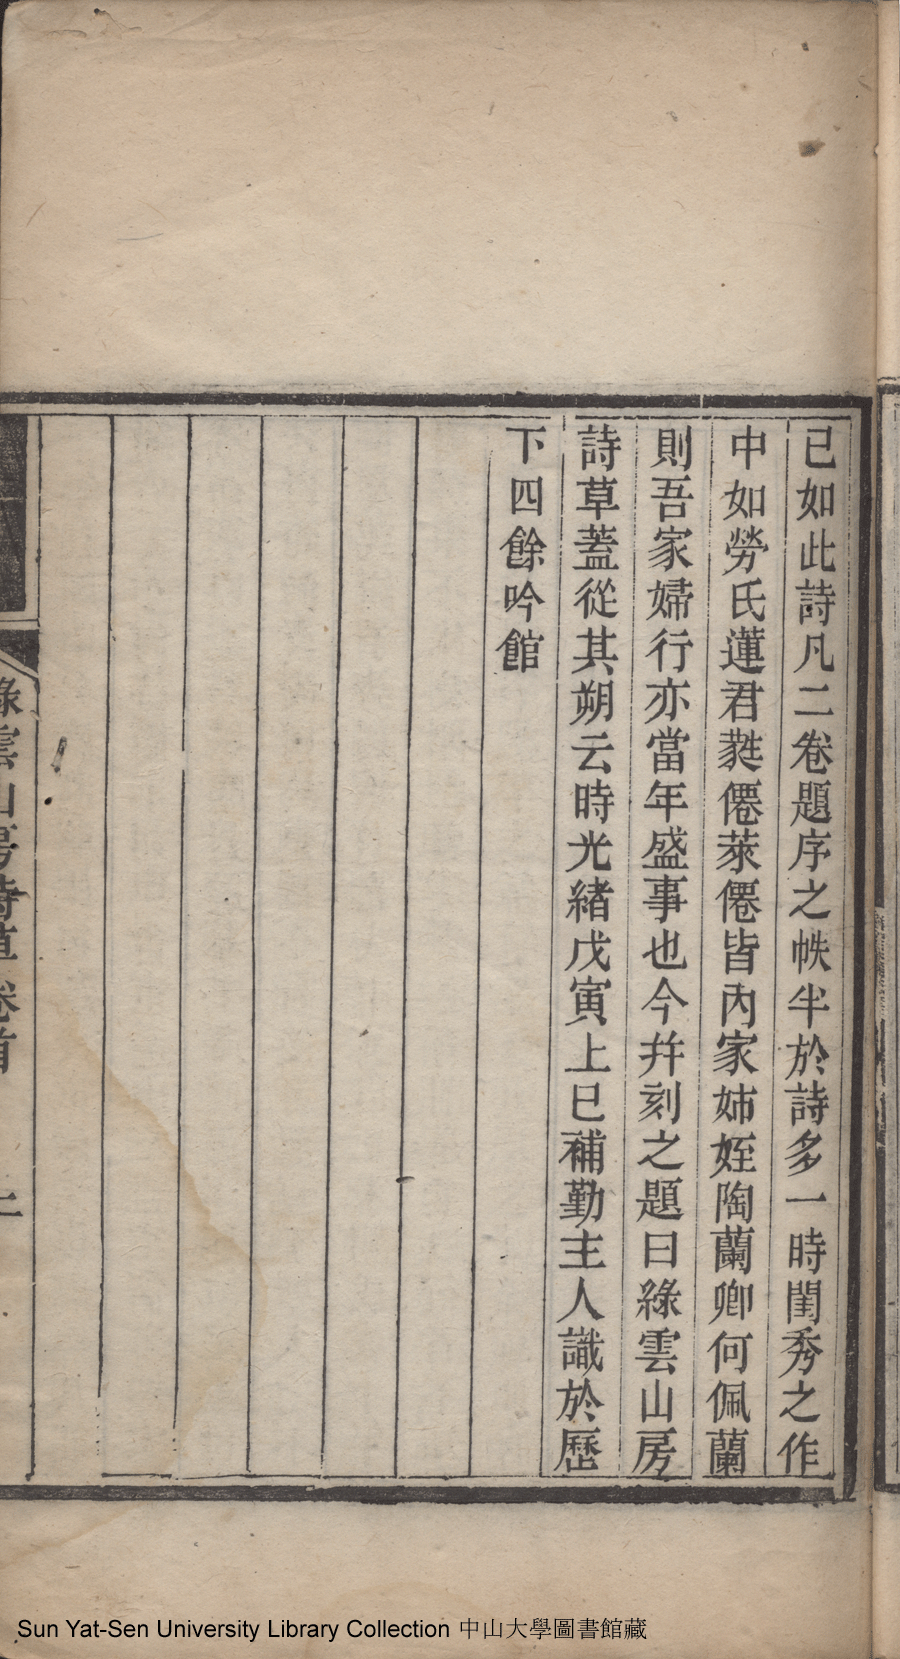 已如此詩凡二卷題序之帙半於詩多一時閨秀之作
中如勞氏蓮君蕤僊萊僊皆內家姊姪陶蘭卿何佩蘭
則吾家婦行亦當年盛事也今幷刻之題曰綠雲山房
詩草蓋從其朔云時光緒戊寅上巳補勤主人識於歷
下四餘吟館
綠雲山房詩草卷首
Sun Yat-Sen University Library Collection 中山大學圖書館藏